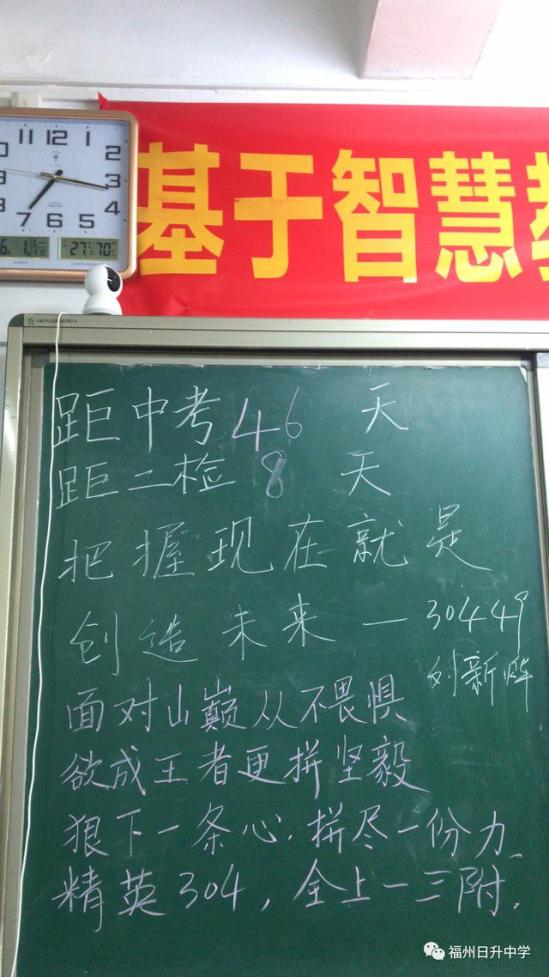 基于智慧教
11 12 1 2 3 4 5 6 7
27 70
距中考46 天
距二检 8 天
把握现在就是
创造未来 — 30449
刘新烨
面对山巅从不畏惧
欲成王者更拼坚毅
狠下一条心,拼尽一份力
精英304,全上一三附.
福州日升中学